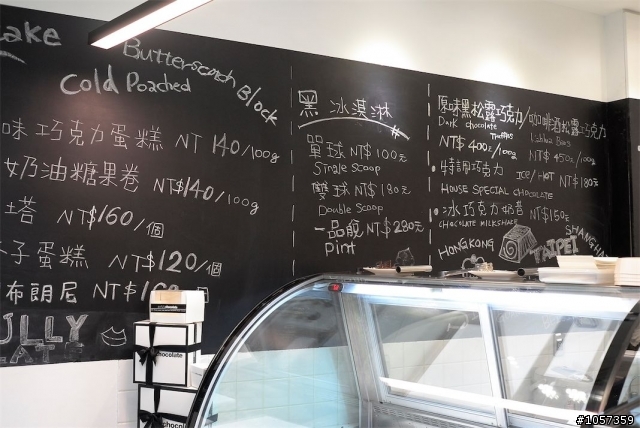 ake
Butterscotch Block
Cold Poached
味巧克力蛋糕 NT 140/100g
奶油糖果卷 NT$140/100g
塔 NT$160/個
子蛋糕 NT$120/個
布朗尼 NT$1
黑冰淇淋
單球 NT$100元
Single Scoop
雙球 NT$180元
Double Scoop
一品脫 NT$280元
Pint
原味黑松露巧克力/咖啡酒松露巧克力
Dark chocolate Truffles
NT$400元/100g NT$450元/100g
特調巧克力 ICE/HOT NT$180元
HOUSE SPECIAL CHOCOLATE
冰巧克力奶昔 NT$150元
CHOCOLATE MILKSHAKE
HONGKONG TAIPEI SHANGH
ULLY
LATE
chocolate
choco
#1057359